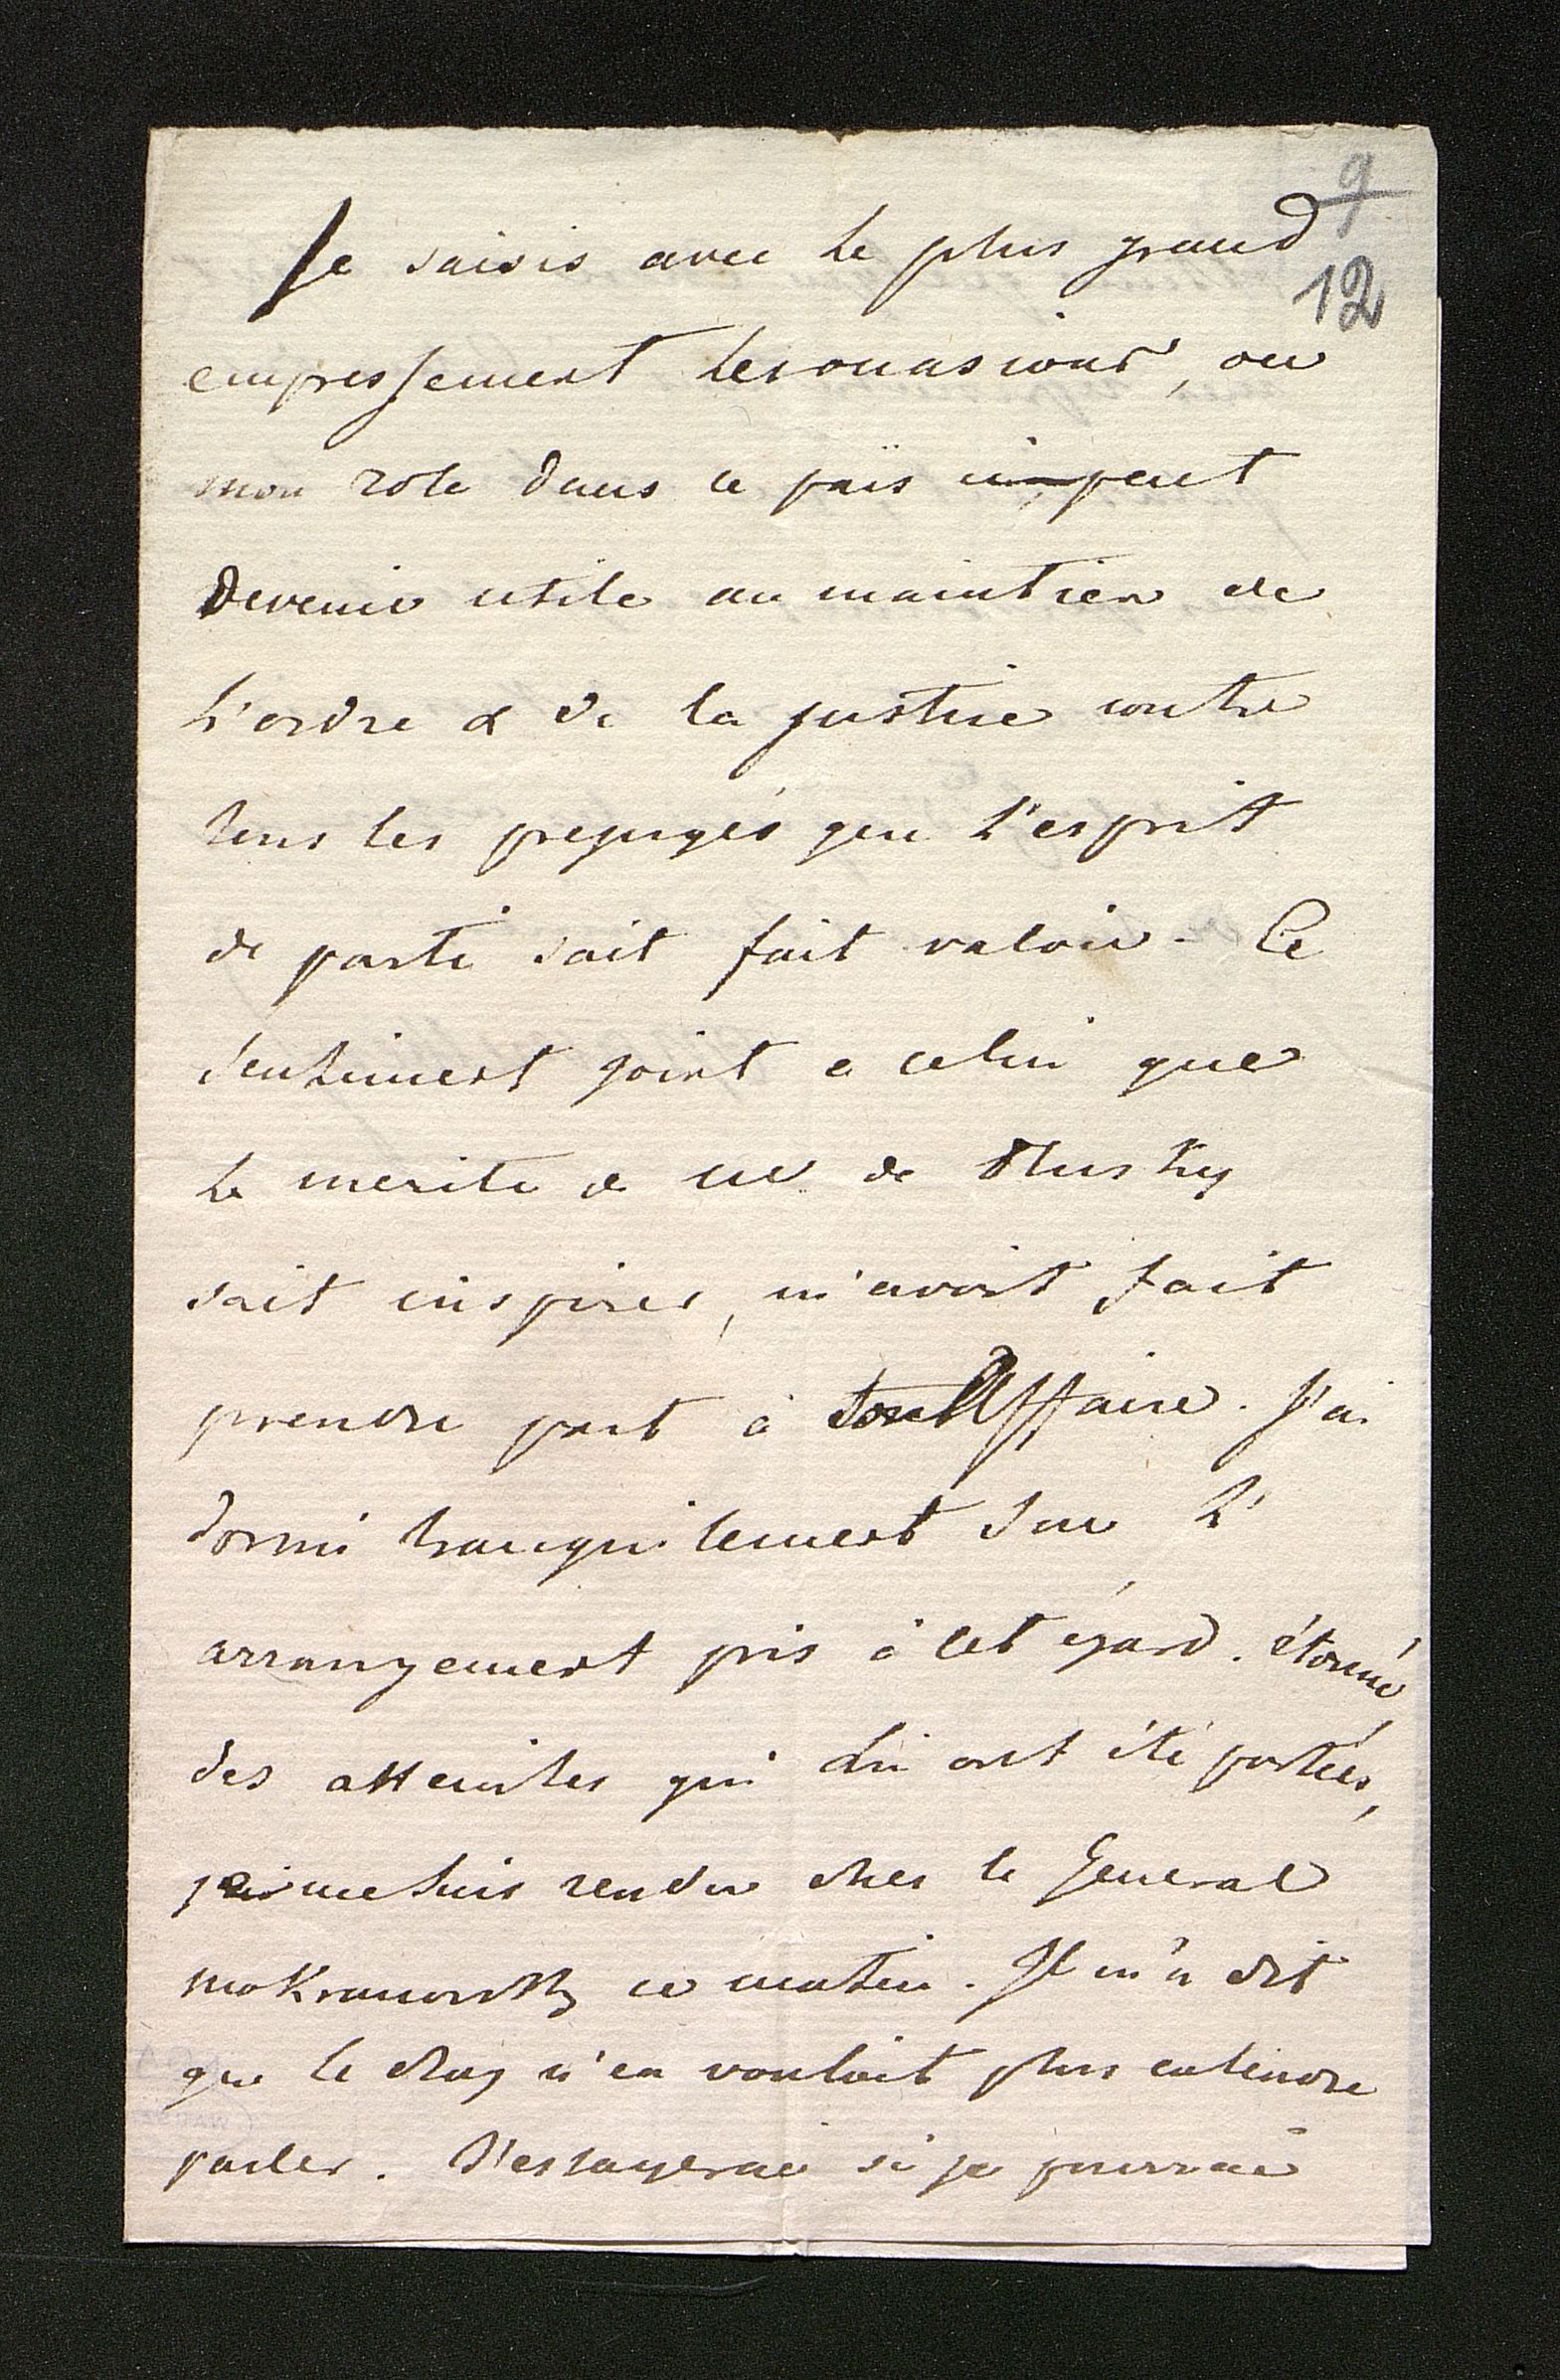 9
12
Je saisis avec le plus grand
empressement les occasions, ou
mon role dans ce païs peut
devenir utile au maintien de
l'ordre & de la justice contre
tous les prejugés que l'esprit
de parti sait fait valoir. Ce
sentiment joint a celui que
le merite de de Dlusky
sait inspirer, m'avoit fait
prendre part à son Affaire. J'ai
dormi tranquilement sur l'
arrangement pris à cet égard. étonné
des atteintes qui lui ont été portées,
je me suis rendu ches le General
Mokranowsky ce matin. Il m'a dit
que le Roy n'en vouloit plus entendre
parler. J'essayerai si je pourrai